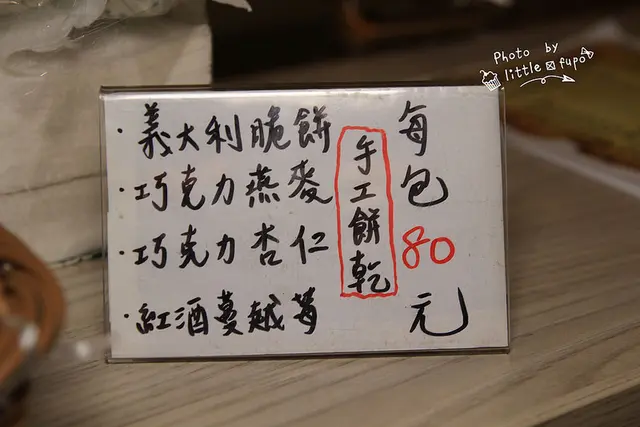 ·義大利脆餅
·巧克力燕麥
·巧克力杏仁
·紅酒蔓越莓
手工餅乾
每包80元
Photo by
little fupo